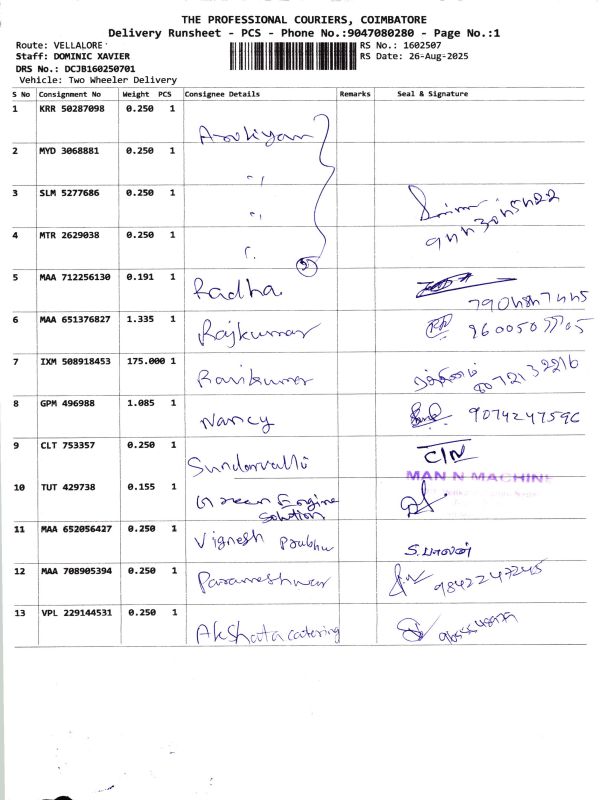 THE PROFESSIONAL COURIERS, COIMBATORE
Delivery Runsheet - PCS - Phone No.:9047080280 - Page No.:1
Route: VELLALORE RS No.: 1602507
Staff: DOMINIC XAVIER RS Date: 26-Aug-2025
DRS No.: DCJB160250701
Vehicle: Two Wheeler Delivery
S No Consignment No Weight PCS Consignee Details Remarks Seal & Signature
1 KRR 50287098 0.250 1
2 MYD 3068881 0.250 1 "
3 SLM 5277686 0.250 1 "
4 MTR 2629038 0.250 1
5 MAA 712256130 0.191 1 Radha
6 MAA 651376827 1.335 1 Rajkumar
7 IXM 508918453 175.000 1 Ravikumar
8 GPM 496988 1.085 1 Nancy 9074247596
9 CLT 753357 0.250 1 Sundarvalli C/N
MAN N MACHINE
10 TUT 429738 0.155 1 Green Engine
Solution
11 MAA 652056427 0.250 1 Vignesh Prabhu S. பாலன்
12 MAA 708905394 0.250 1 Parameshwar 9842247245
13 VPL 229144531 0.250 1 Akshata catering